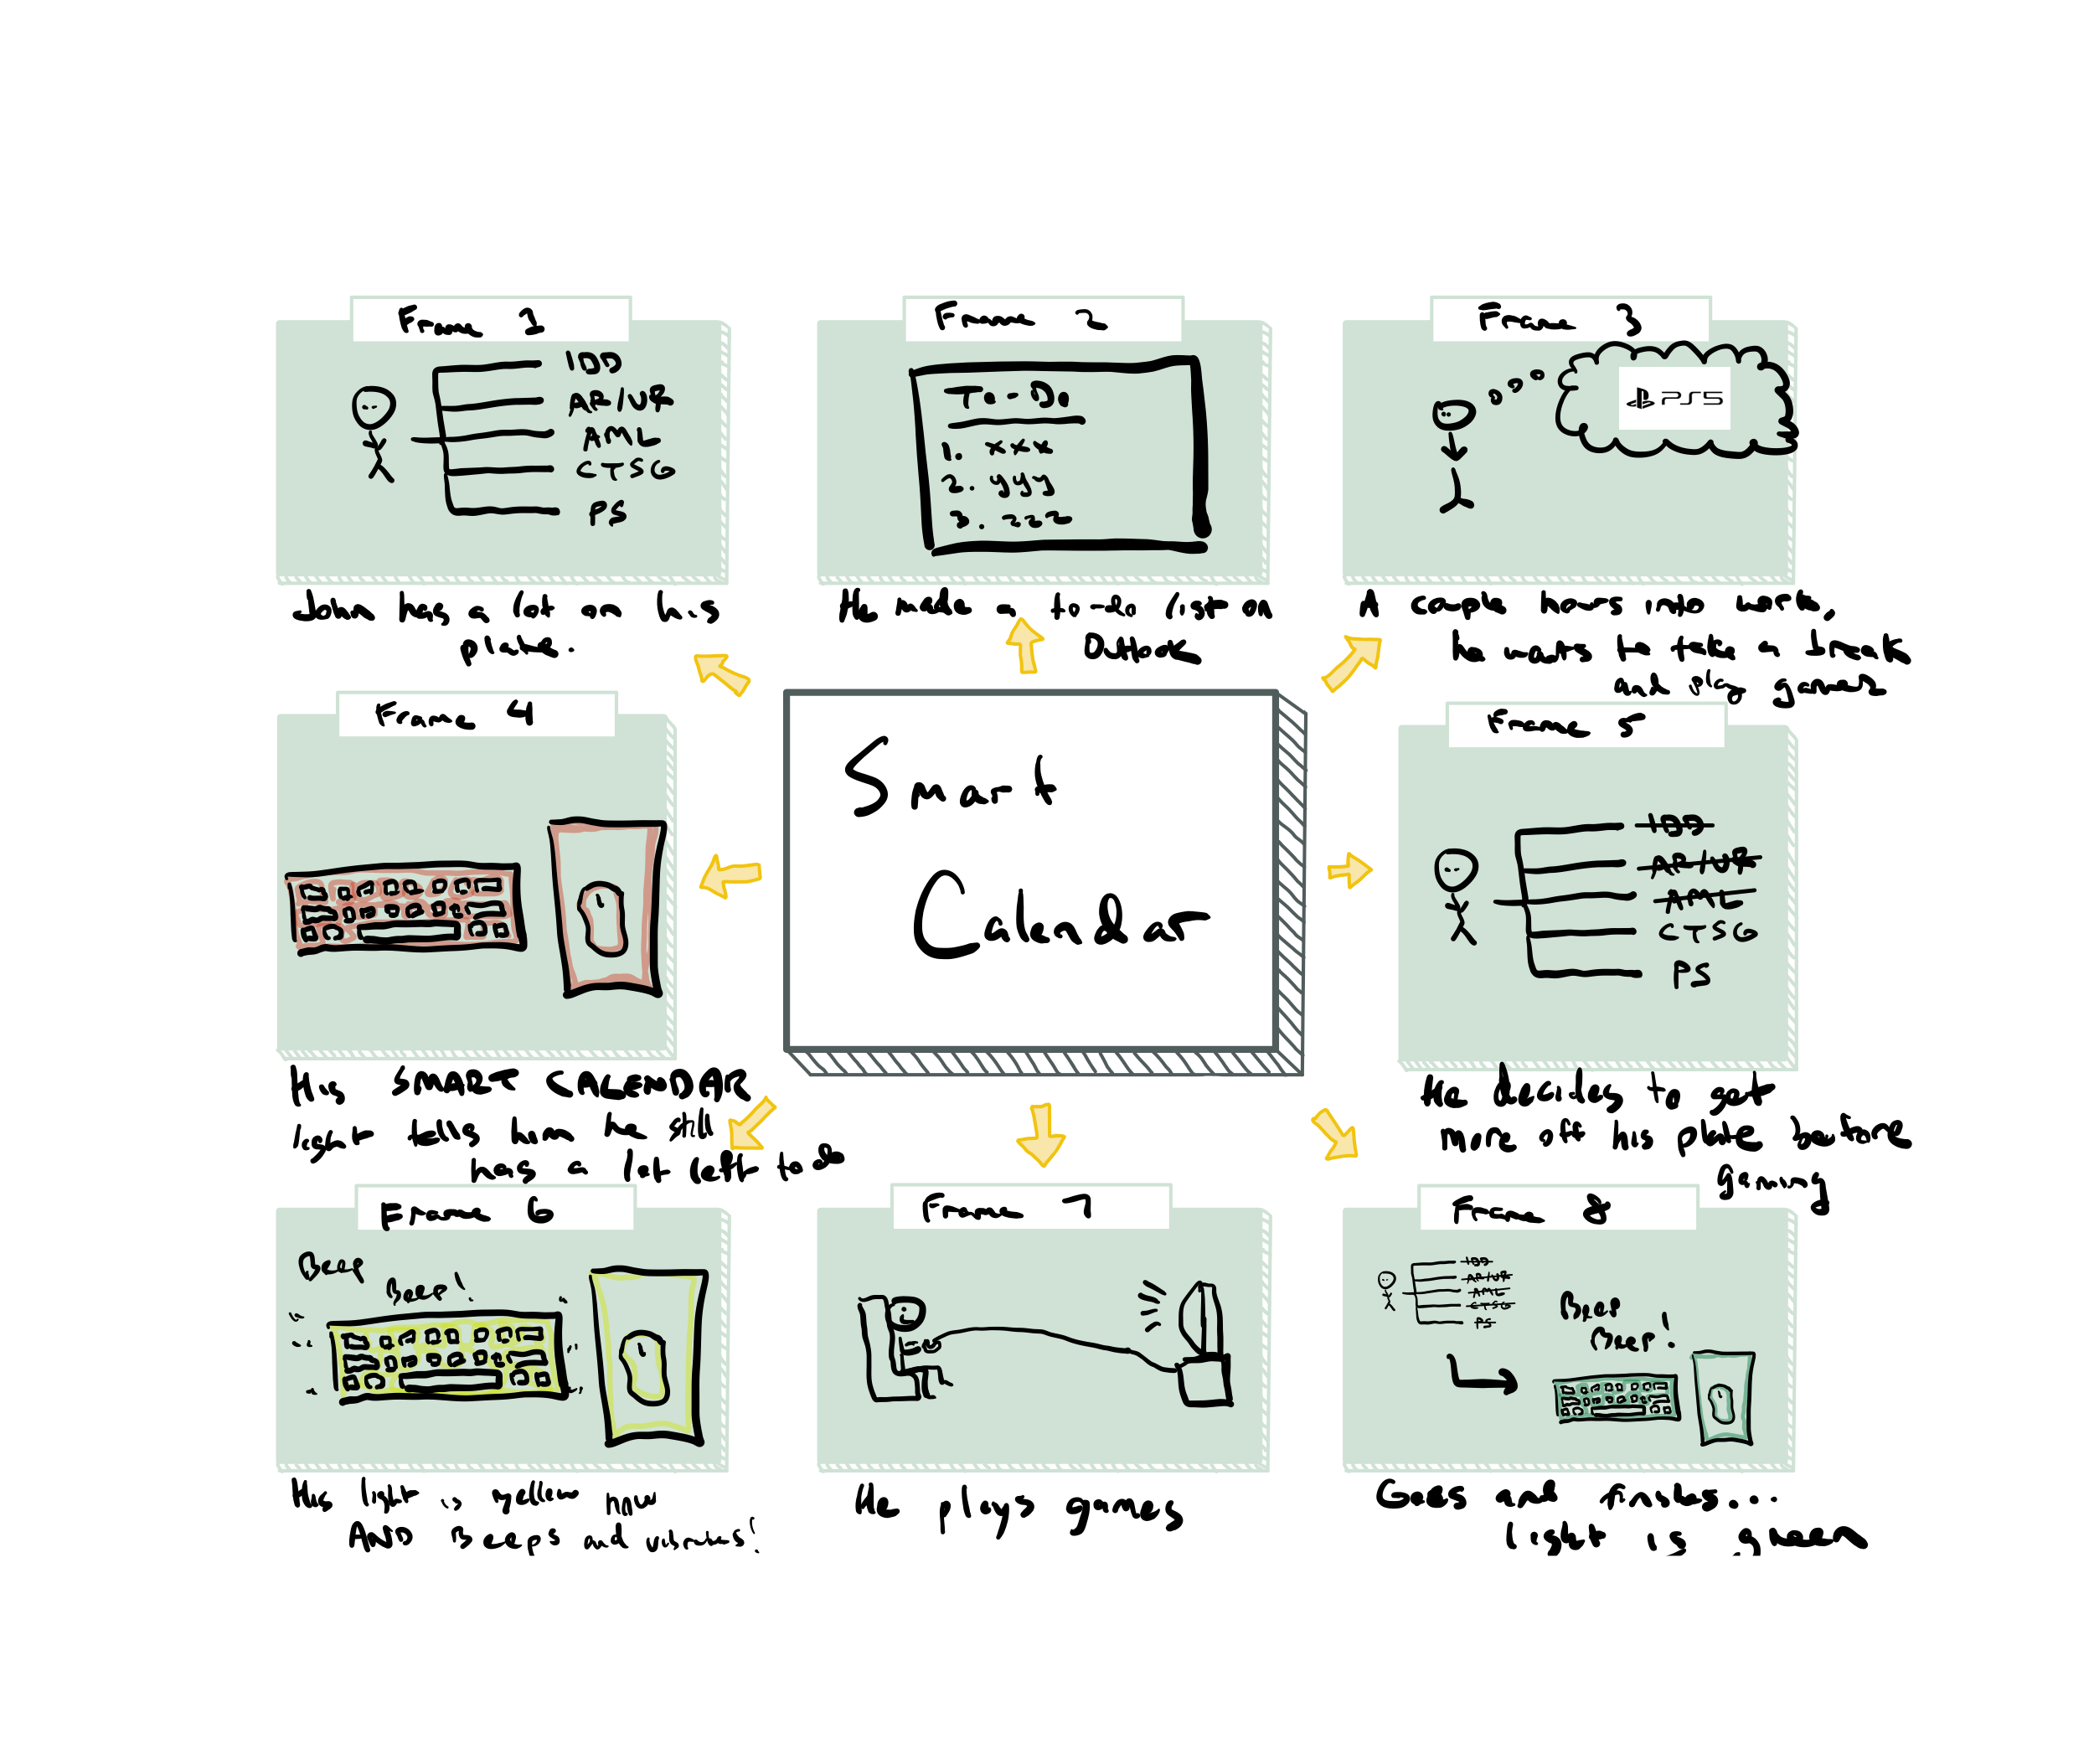 Frame 1
IDD
AR/VR
AML
CTSG
PS
John has a lot on his
plate.
Frame 2
To-Do
1. xxx
2. yyy
3. zzz
He made a to-do list on
Outlook
Frame 3
PS5
A couple hours into work,
he wants to take a break
and play games
Frame 4
His SMART CALENDAR
light tells him he still
has a lot left to do
Smart
Calendar
Frame 5
IDD
AR/VR
AML
CTSG
PS
He decides to get
more off his plate before
gaming
Frame 6
Beep
Beep!
His light is yellow now
AND Beeps and vibrates!
Frame 7
He plays games
Frame 8
IDD
AR/VR
AML
CTSG
PS
Beep
Beep!
Goes and finishes...
light is green